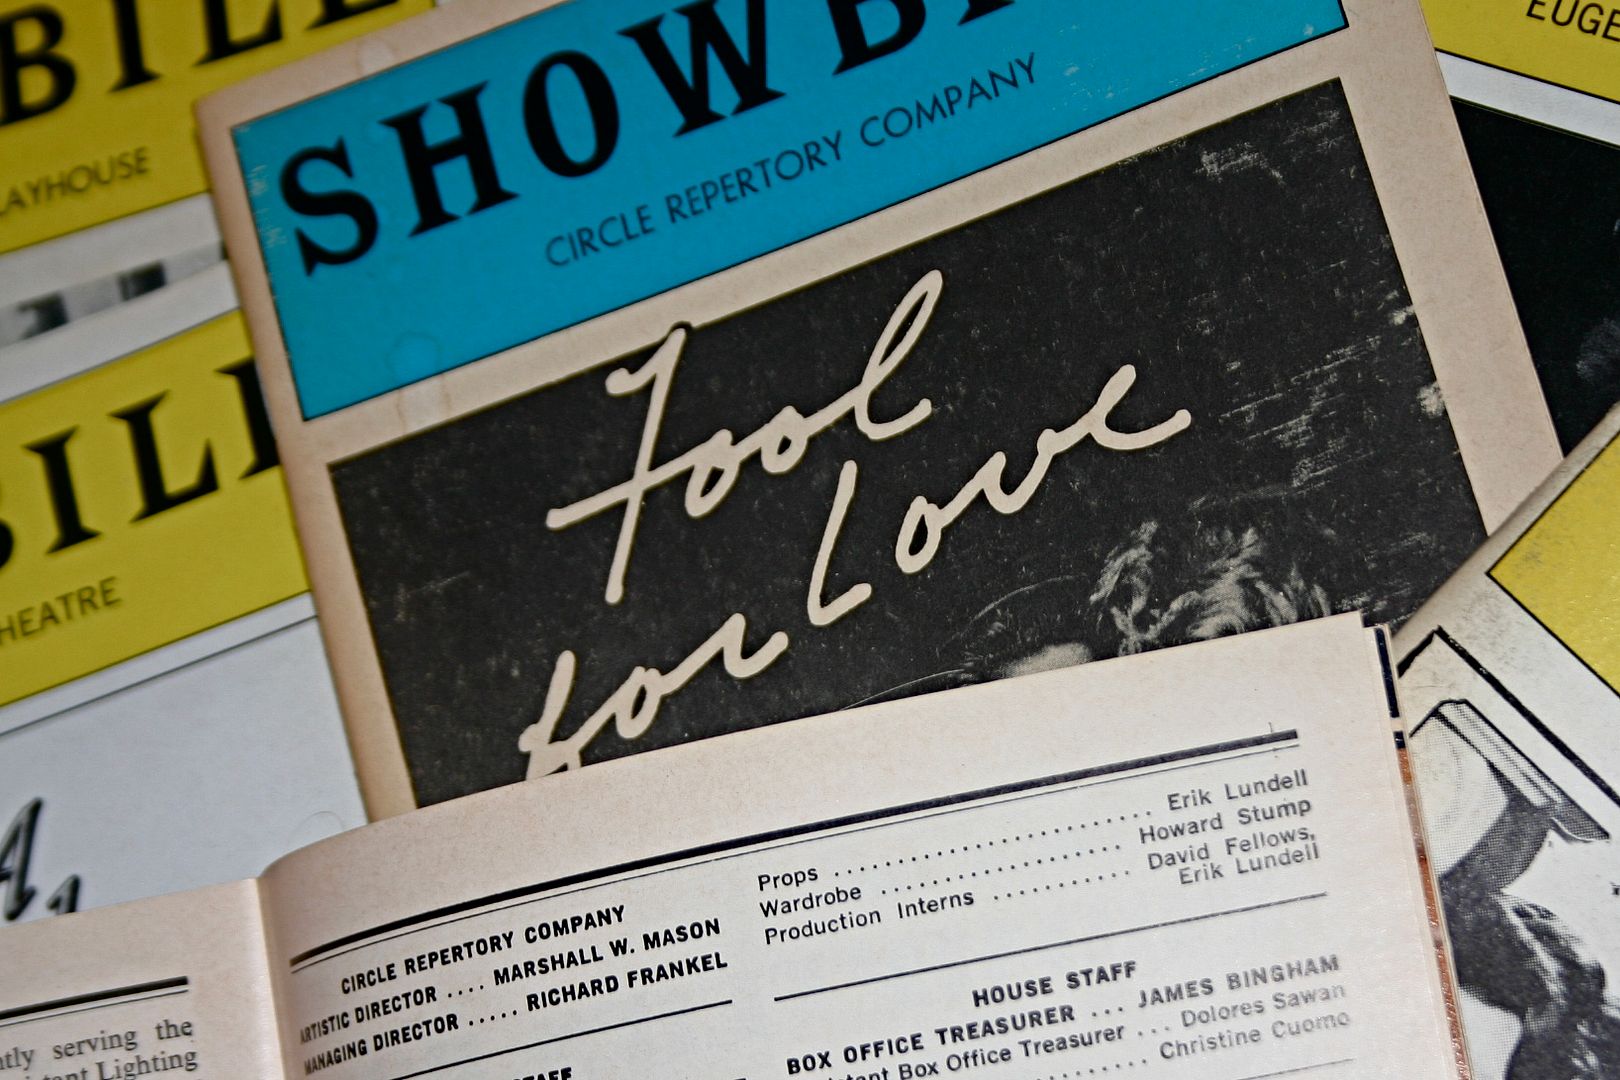 BILL
AYHOUSE
BILL
HEATRE
SHOWB
CIRCLE REPERTORY COMPANY
Fool
for Love
EUGE
Props .......... Erik Lundell
Wardrobe .......... Howard Stump
Production Interns .......... David Fellows,
Erik Lundell
CIRCLE REPERTORY COMPANY
ARTISTIC DIRECTOR .... MARSHALL W. MASON
MANAGING DIRECTOR ..... RICHARD FRANKEL
HOUSE STAFF
BOX OFFICE TREASURER ... JAMES BINGHAM
stant Box Office Treasurer ... Dolores Sawan
.......... Christine Cuomo
ntly serving the
istant Lighting
TAFF